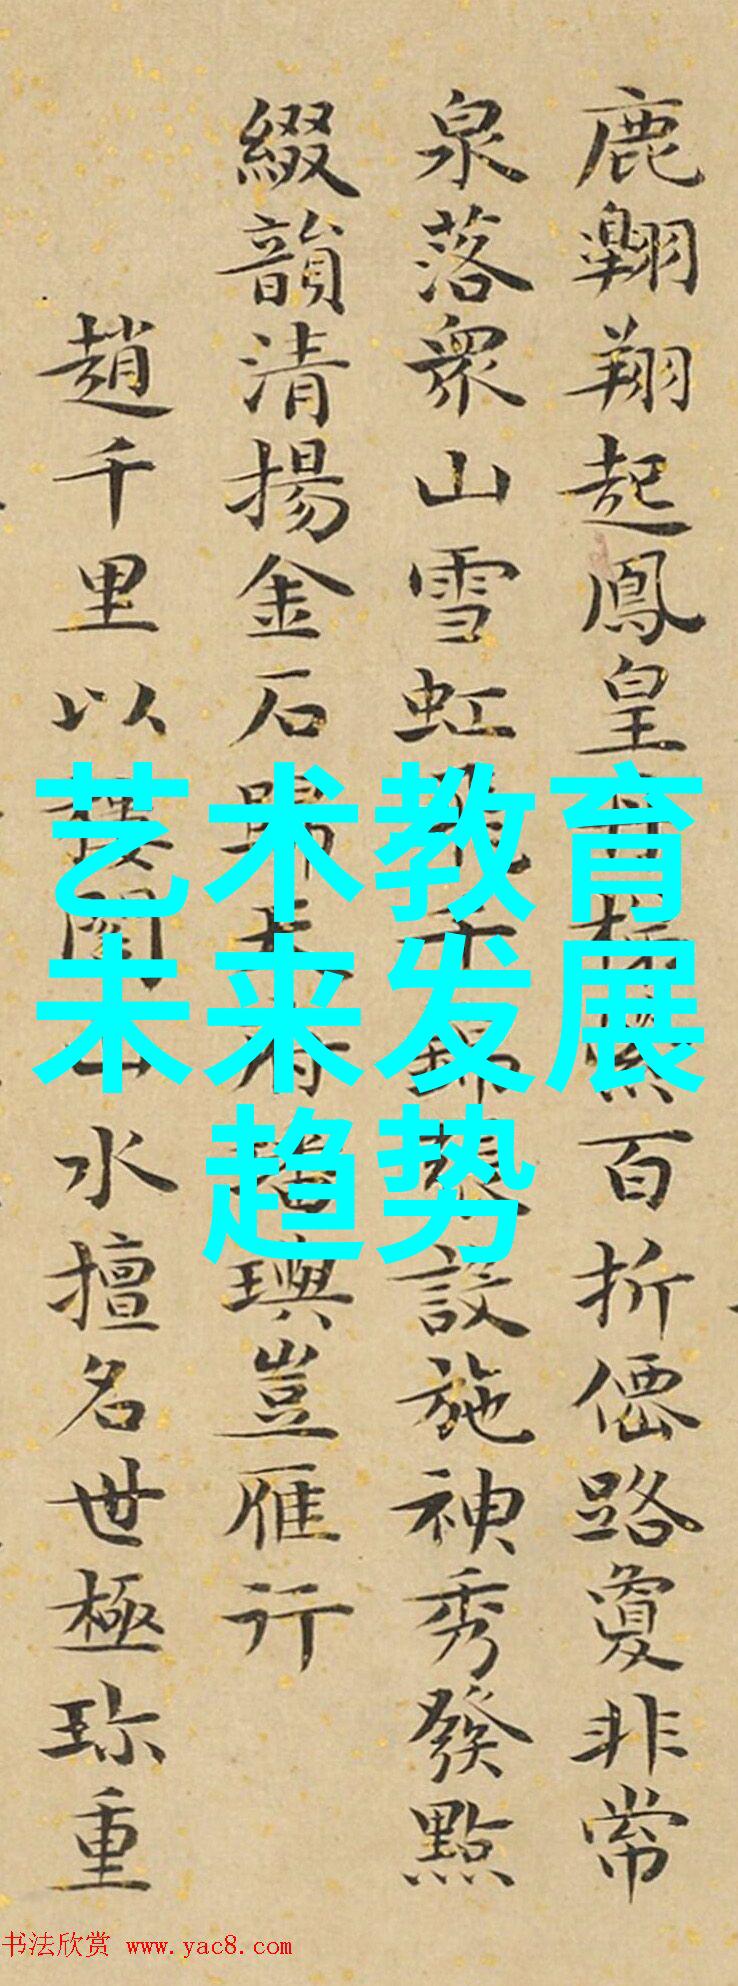 鹿翺翔起鳳皇 百折僊路敻非常
泉落衆山雪虹 設施神秀發點
綴韻清揚金石歸 璵豈雁行
趙千里以樓閣山水擅名世極珎重
艺术教育
未来发展
趋势
书法欣赏 www.yac8.com